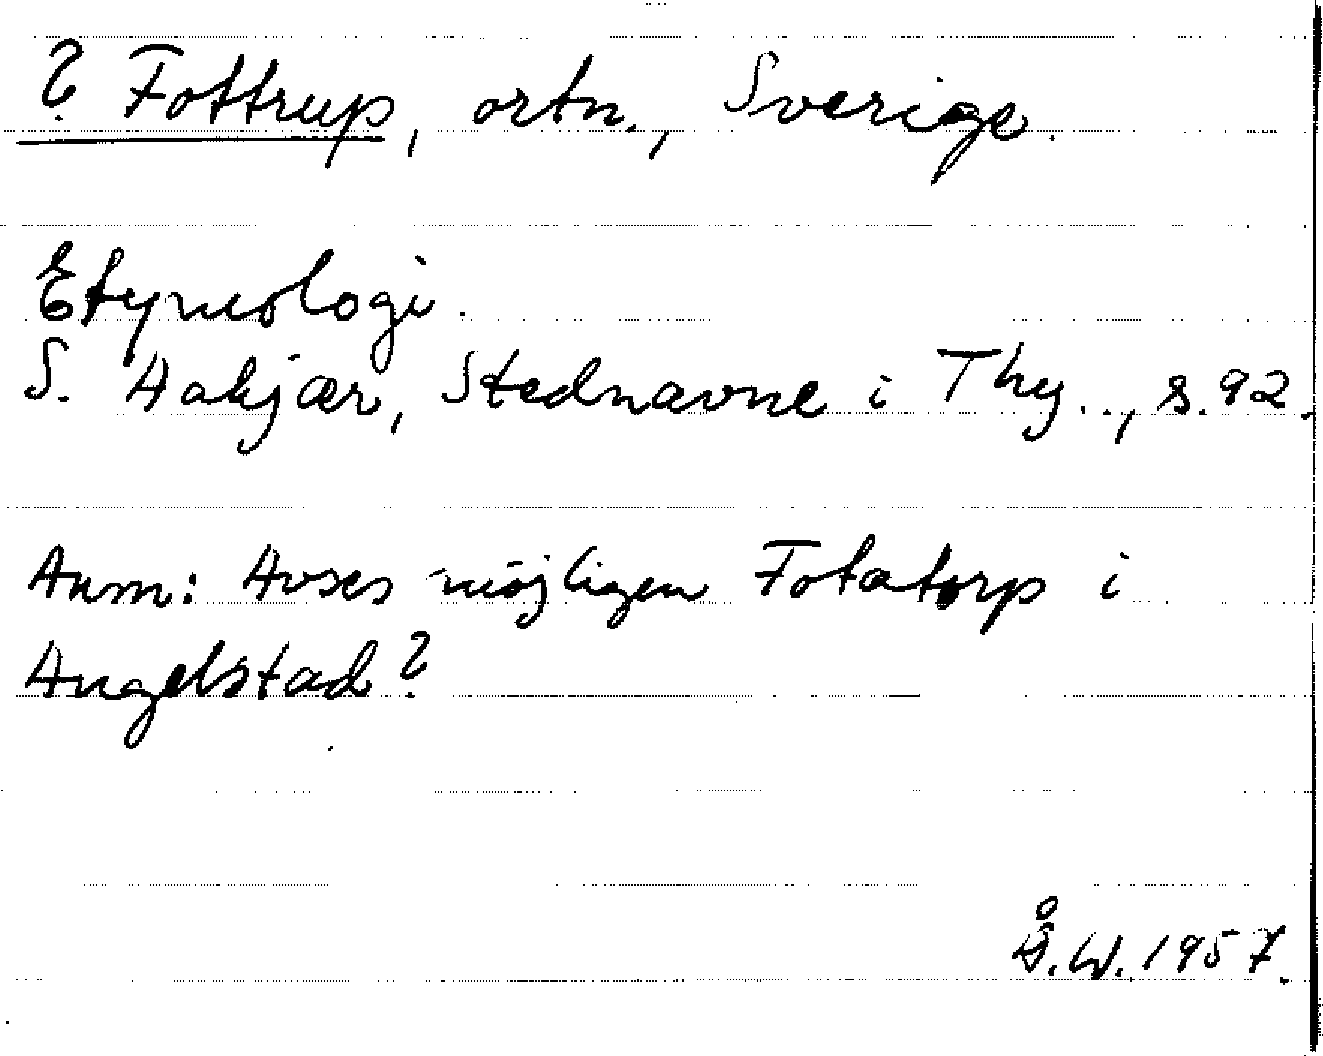 ? Fottrup, ortn., Sverige.
Etymologi.
S. Aakjær, Stednavne i Thy.., s. 92.
Anm: Avses möjligen Fotatorp i
Angelstad?
Å.W. 1957.